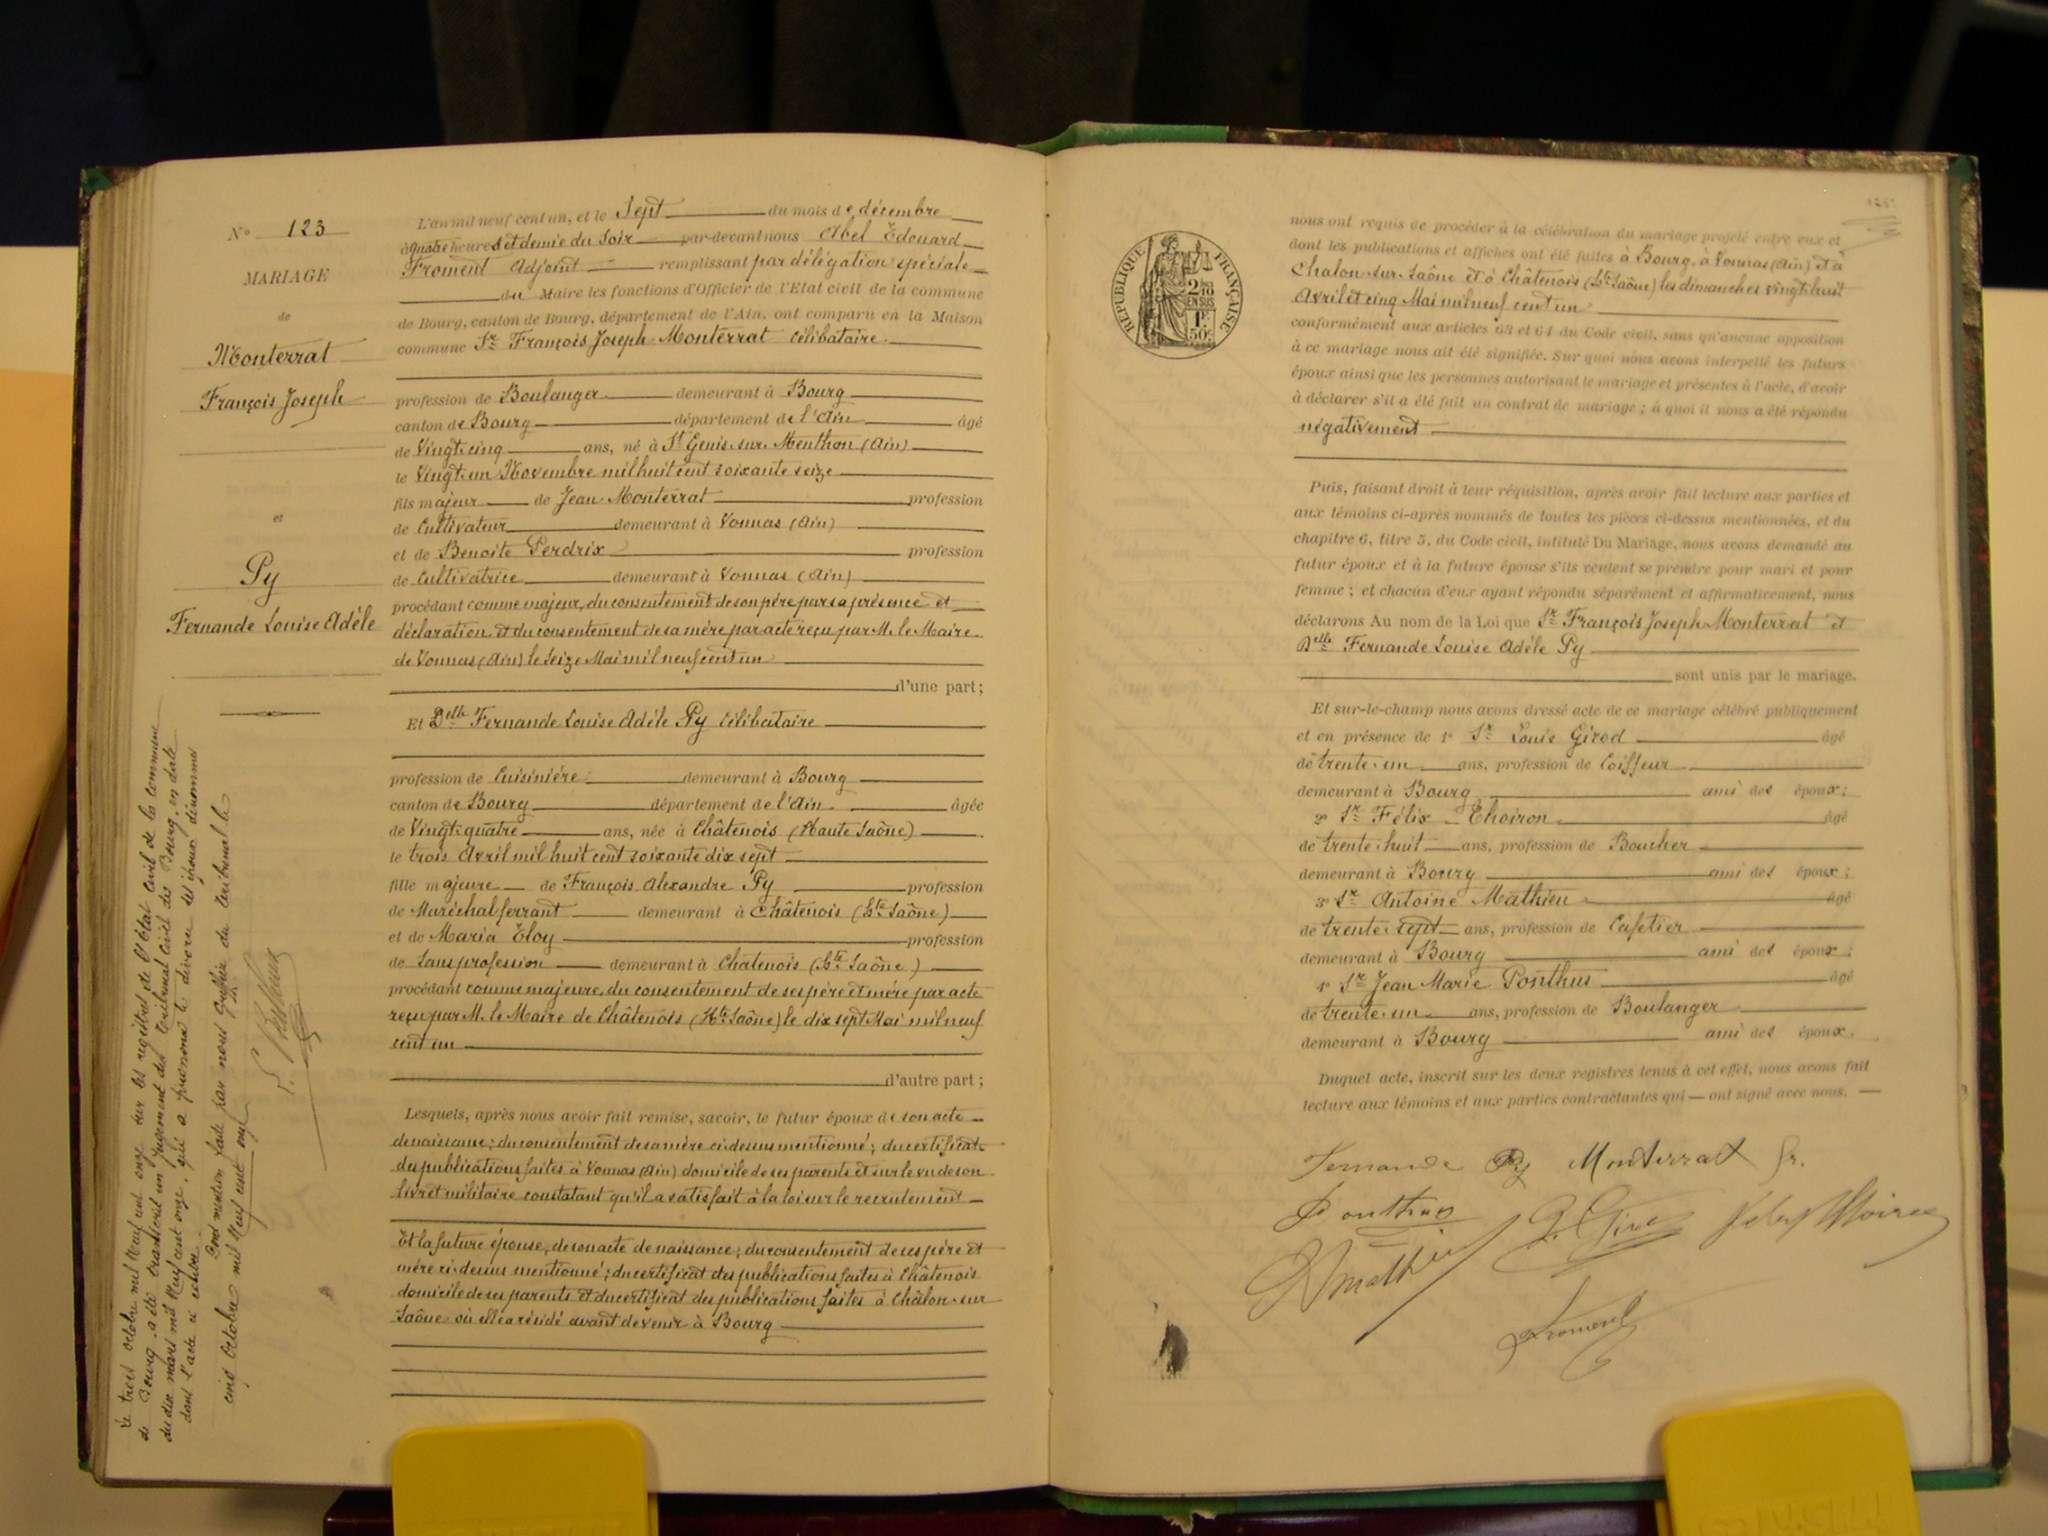 N° 123
MARIAGE
de
Monterrat
François Joseph
et
Py
Fernande Louise Adèle
Le trois octobre mil neuf cent onze sur les registres de l'état civil de la commune
de Bourg, a été transcrit un jugement du tribunal civil de Bourg, en date
du dix mars mil neuf cent onze, qui a prononcé le divorce des époux dénommés
dont l'acte ci contre.
Dont mention faite par nous greffier du tribunal le
cinq octobre mil neuf cent onze
L'an mil neuf cent un, et le Sept du mois de décembre
à quatre heures et demie du Soir par-devant nous Abel Edouard
Froment Adjoint remplissant par délégation spéciale
du Maire les fonctions d'Officier de l'Etat civil de la commune
de Bourg, canton de Bourg, département de l'Ain, ont comparu en la Maison
commune Sr François Joseph Monterrat célibataire.
profession de Boulanger demeurant à Bourg
canton de Bourg département de l'Ain âgé
de Vingt cinq ans, né à St Genis sur Menthon (Ain)
le Vingt un Novembre mil huit cent soixante seize
fils majeur de Jean Monterrat profession
de Cultivateur demeurant à Vonnas (Ain)
et de Benoite Perdrix profession
de Cultivatrice demeurant à Vonnas (Ain)
procédant comme majeur, du consentement de son père par sa présence et
déclaration et du consentement de sa mère par acte reçu par M. le Maire
de Vonnas (Ain) le Seize Mai mil neuf cent un
d'une part;
Et Delle Fernande Louise Adèle Py célibataire
profession de Cuisinière demeurant à Bourg
canton de Bourg département de l'Ain. âgée
de Vingt quatre ans, née à Châtenois (Haute Saône)
le trois Avril mil huit cent soixante dix sept
fille majeure de François Alexandre Py profession
de Maréchal ferrant demeurant à Châtenois (Hte Saône)
et de Maria Eloy profession
de Sans profession demeurant à Châtenois (Hte Saône)
procédant comme majeure, du consentement de ses père et mère par acte
reçu par M. le Maire de Châtenois (Hte Saône) le dix sept Mai mil neuf
cent un
d'autre part;
Lesquels, après nous avoir fait remise, savoir, le futur époux de son acte
de naissance; du consentement de sa mère ci-dessus mentionné; du certificat
des publications faites à Vonnas (Ain) domicile de ses parents et sur le vu de son
livret militaire constatant qu'il a satisfait à la loi sur le recrutement
Et la future épouse, de son acte de naissance; du consentement de ses père et
mère ci-dessus mentionné; du certificat des publications faites à Châtenois
domicile de ses parents et du certificat des publications faites à Châlon-sur
Saône où elle a résidé avant de venir à Bourg
RÉPUBLIQUE FRANÇAISE
2/10 EN SUS
1F 50c
nous ont requis de procéder à la célébration du mariage projeté entre eux et
dont les publications et affiches ont été faites à Bourg, à Vonnas (Ain) et à
Chalon-sur-Saône et à Châtenois (Hte Saône) les dimanches vingt-huit
Avril et cinq Mai mil neuf cent un
conformément aux articles 63 et 64 du Code civil, sans qu'aucune opposition
à ce mariage nous ait été signifiée. Sur quoi nous avons interpellé les futurs
époux ainsi que les personnes autorisant le mariage et présentes à l'acte, d'avoir
à déclarer s'il a été fait un contrat de mariage; à quoi il nous a été répondu
négativement
Puis, faisant droit à leur réquisition, après avoir fait lecture aux parties et
aux témoins ci-après nommés de toutes les pièces ci-dessus mentionnées, et du
chapitre 6, titre 5, du Code civil, intitulé Du Mariage, nous avons demandé au
futur époux et à la future épouse s'ils veulent se prendre pour mari et pour
femme; et chacun d'eux ayant répondu séparément et affirmativement, nous
déclarons Au nom de la Loi que Sr François Joseph Monterrat et
Delle Fernande Louise Adèle Py
sont unis par le mariage.
Et sur-le-champ nous avons dressé acte de ce mariage célébré publiquement
et en présence de 1° Sr Louis Girod âgé
de trente-un ans, profession de Coiffeur
demeurant à Bourg ami des époux;
2° Sr Félix Thoiron âgé
de trente-huit ans, profession de Boucher
demeurant à Bourg ami des époux;
3° Sr Antoine Mathieu âgé
de trente-sept ans, profession de Cafetier
demeurant à Bourg ami des époux;
4° Sr Jean Marie Ponthus âgé
de trente-un ans, profession de Boulanger
demeurant à Bourg ami des époux.
Duquel acte, inscrit sur les deux registres tenus à cet effet, nous avons fait
lecture aux témoins et aux parties contractantes qui — ont signé avec nous. —
Fernande Py Monterrat fr.
Ponthus
Froment